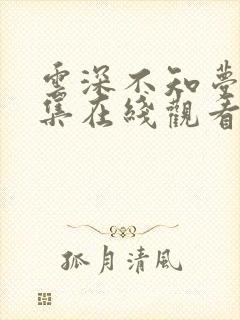 雲深不知夢
集在綫觀看
孤月清風